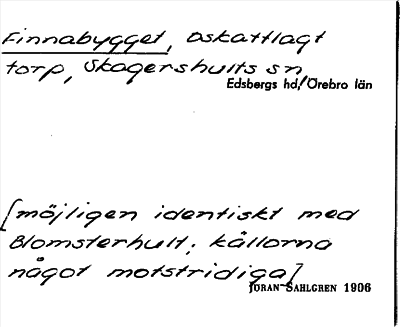 Finnabygget, oskattlagt
torp, Skagershults sn,
Edsbergs hd, Örebro län
[möjligen identiskt med
Blomsterhult; källorna
något motstridiga]
JÖRAN SAHLGREN 1906